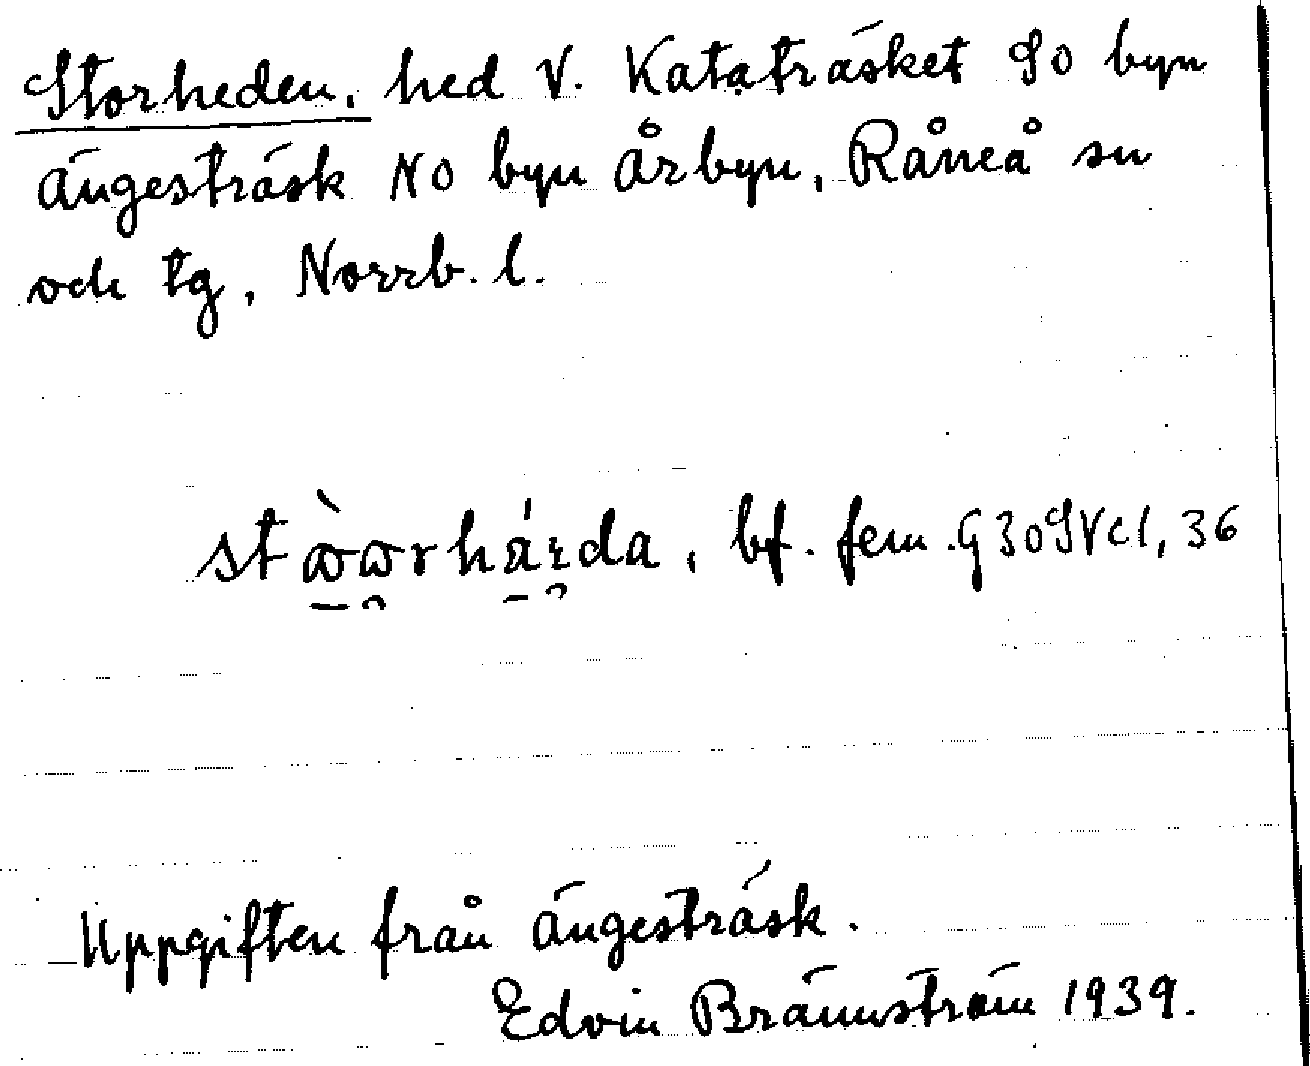 Storheden, hed V. Kataträsket SO byn
Ängesträsk NO byn Årbyn, Råneå sn
och tg, Norrb. l.
bf. fem. G 30 S V c 1, 36
Uppgiften från Ängesträsk.
Edvin Brännström 1939.